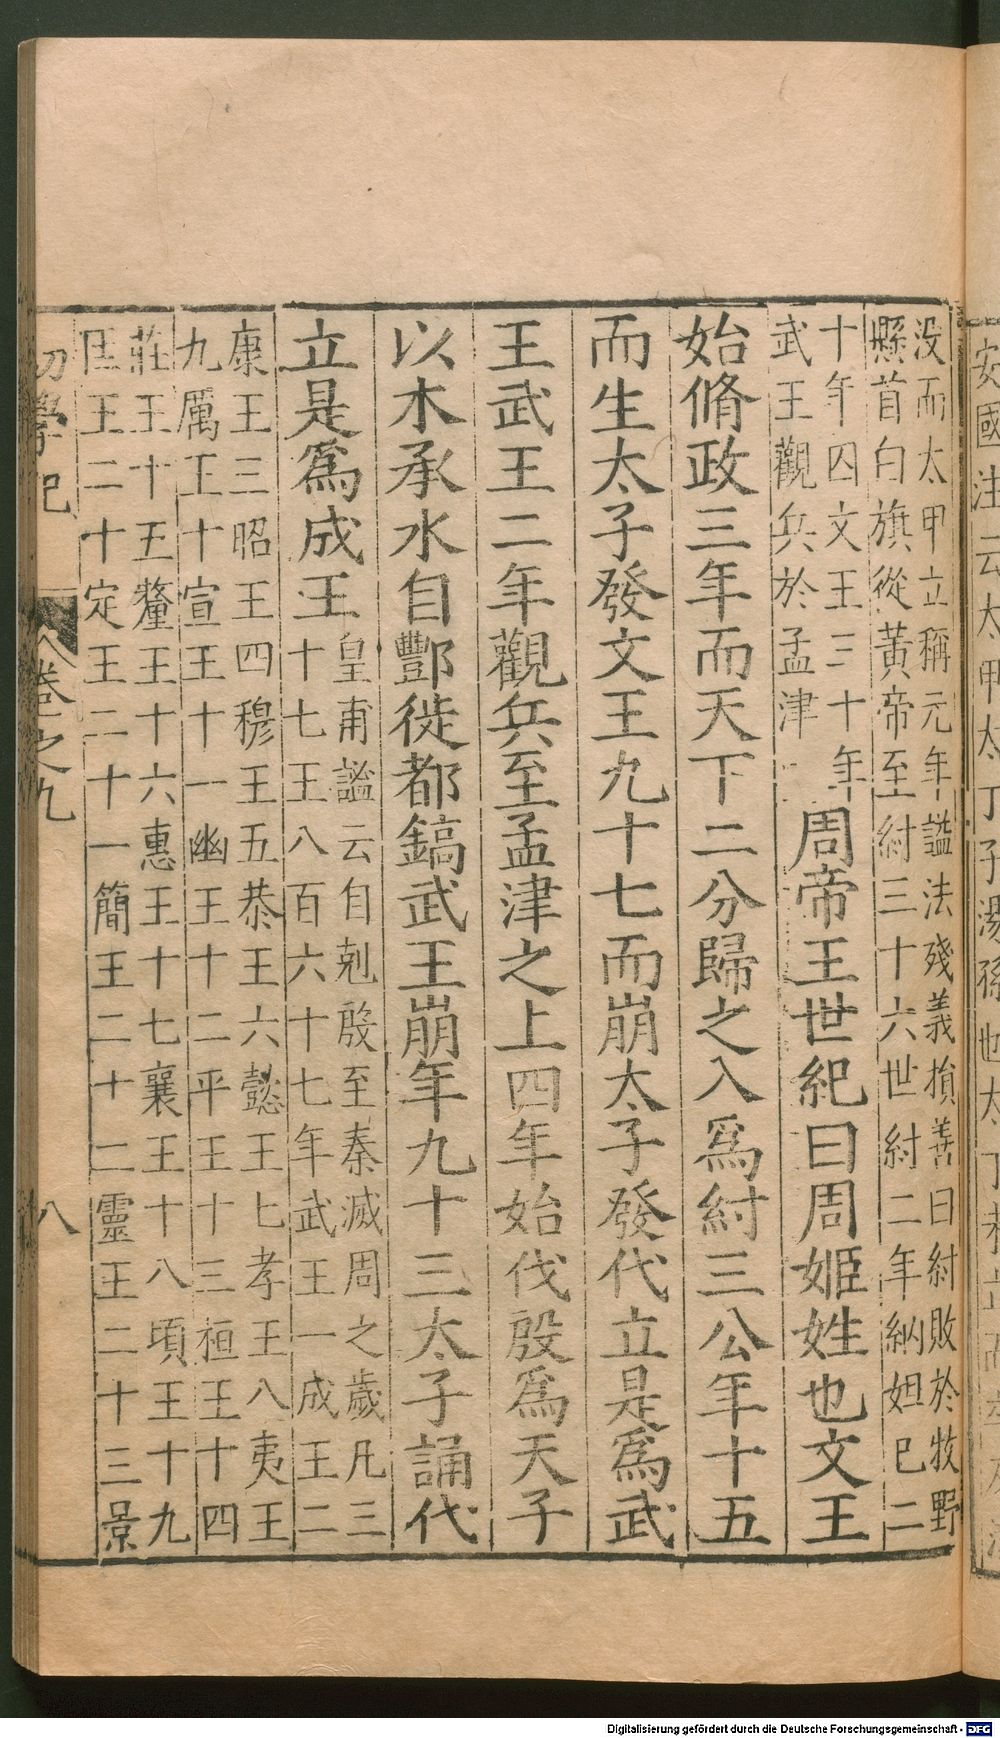 没而太甲立稱元年謚法殘義損善曰紂敗於牧野
縣首白旗從黃帝至紂三十六世紂二年納妲已二
十年囚文王三十年
武王觀兵於孟津
周帝王世紀曰周姬姓也文王
始脩政三年而天下二分歸之入爲紂三公年十五
而生太子發文王九十七而崩太子發代立是爲武
王武王二年觀兵至孟津之上四年始伐殷爲天子
以木承水自酆徙都鎬武王崩年九十三太子誦代
立是爲成王
皇甫謐云自剋殷至秦滅周之歲凡三
十七王八百六十七年武王一成王二
康王三昭王四穆王五恭王六懿王七孝王八夷王
九厲王十宣王十一幽王十二平王十三桓王十四
莊王十五釐王十六惠王十七襄王十八頃王十九
匡王二十定王二十一簡王二十二靈王二十三景
初學記
卷之九
八
安國注云太甲太丁子湯孫也太丁
Digitalisierung gefördert durch die Deutsche Forschungsgemeinschaft - DFG